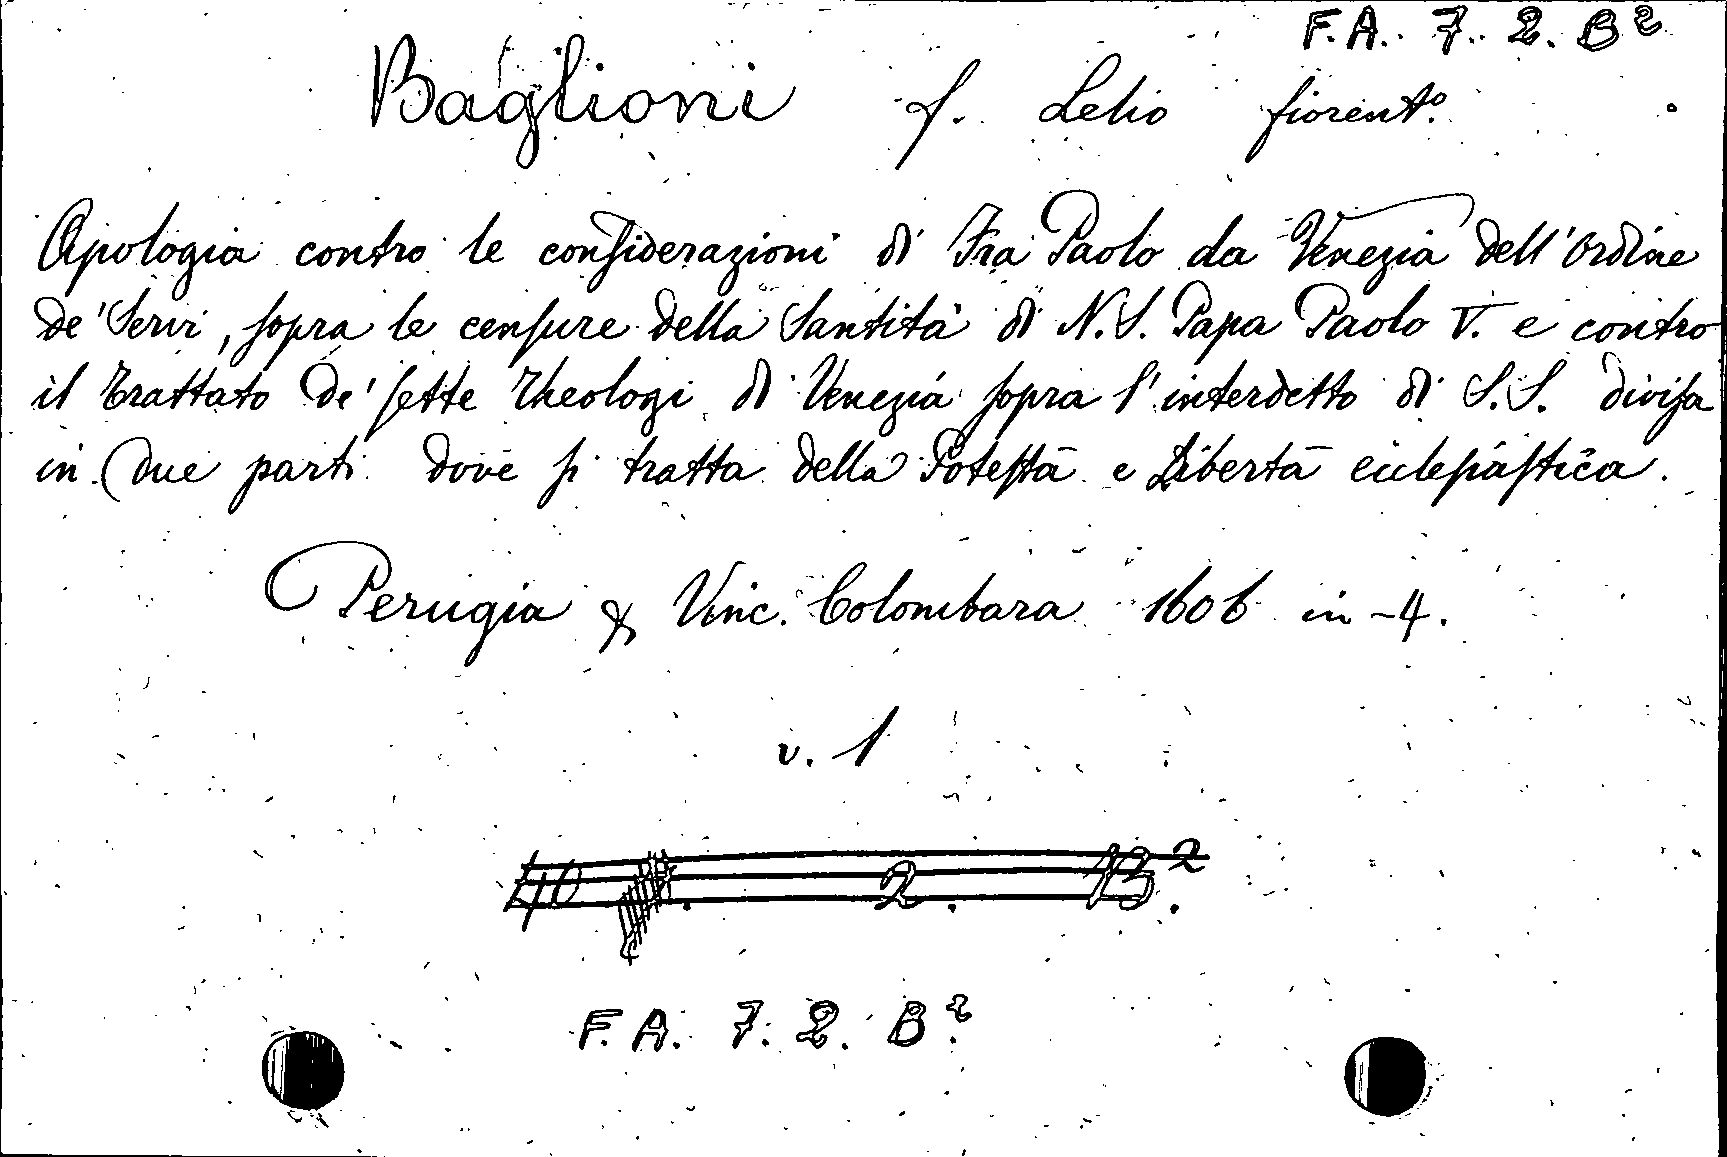 F.A. 7. 2. B²
Baglioni f. Lelio fiorent.º
Apologia contro le considerazioni di Fra Paolo da Venezia dell'Ordine
de' Servi, sopra le censure della Santità di N.S. Papa Paolo V. e contro
il trattato de' sette Theologi di Venezia sopra l'interdetto di S.S. divisa
in due parti dove si tratta della Potestà e Libertà ecclesiastica.
Perugia & Vinc. Colombara 1606 in-4.
v. 1
2. B².
F.A. 7. 2. B².